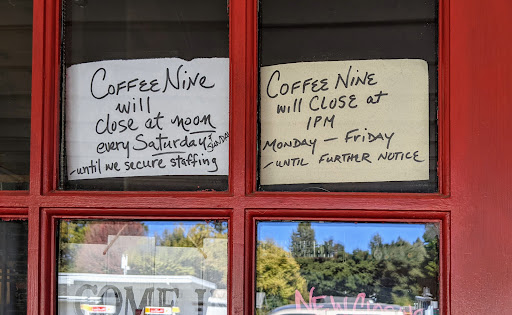 Coffee Nine
will
close at noon
every Saturday + Sunday
- until we secure staffing
Coffee Nine
will close at
1PM
Monday - Friday
- until further notice
COME
NEW